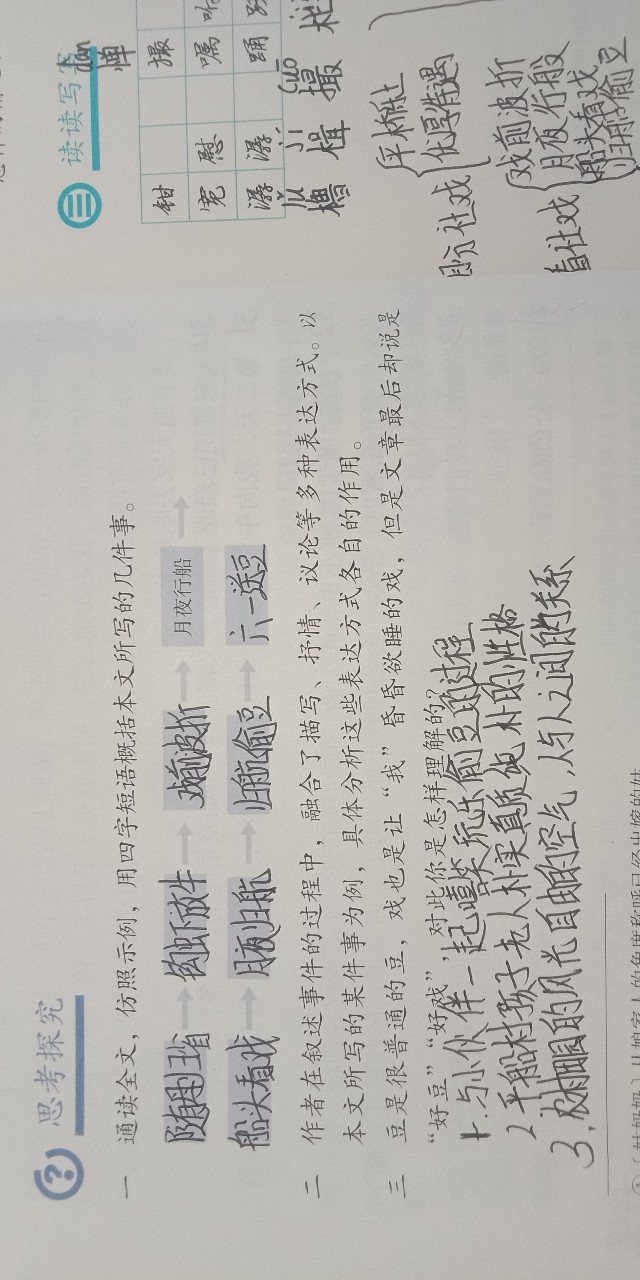 思考探究
一 通读全文，仿照示例，用四字短语概括本文所写的几件事。
随母归省 → 钩虾放牛 → 戏前波折 → 月夜行船 →
船头看戏 → 月夜归航 → 归航偷豆 → 六一送豆
二 作者在叙述事件的过程中，融合了描写、抒情、议论等多种表达方式。以
本文所写的某件事为例，具体分析这些表达方式各自的作用。
三 豆是很普通的豆，戏也是让“我”昏昏欲睡的戏，但是文章最后却说是
“好豆”“好戏”，对此你是怎样理解的？
1.与小伙伴一起嘻笑玩乐偷豆的过程
2平船村孩子老人朴实真质纯朴的性格
3，农村田间的风光自由的空气，人与人之间的关系
三 读读写写
钳 撮
宽 慰 嘱 咐
潺 潺 踊
dān
惮
jí
楫
cuō
撮
平桥村社
优厚待遇
盼社戏
戏前波折
月夜行般
船头看戏
归航偷豆
看社戏